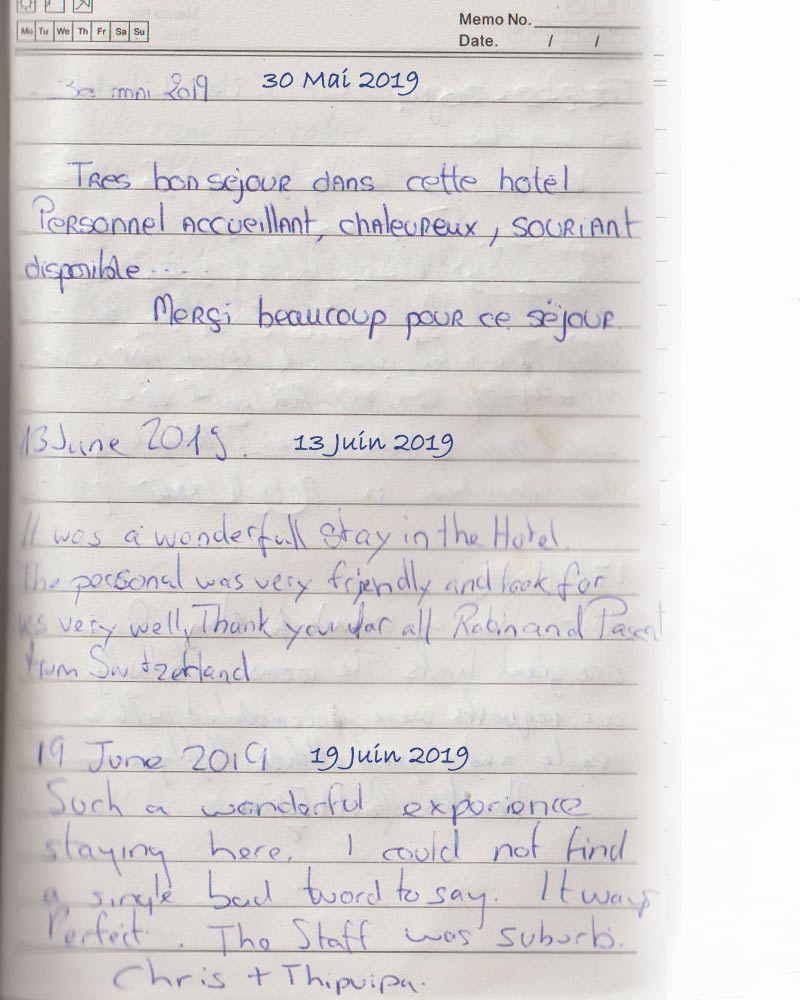 Memo No.
Mo Tu We Th Fr Sa Su
Date. / /
30 mai 2019 30 Mai 2019
Tres bon sejour dans cette hotel
Personnel accueillant, chaleureux, souriant
disponible ....
Merçi beaucoup pour ce séjour.
13 June 2019. 13 Juin 2019
It was a wonderfull stay in the Hotel.
The personal was very friendly and look for
us very well, Thank you for all Robin and Pascal
from Switzerland
19 June 2019 19 Juin 2019
Such a wonderful experience
staying here. I could not find
a single bad word to say. It was
Perfect. The Staff was suburb.
Chris +